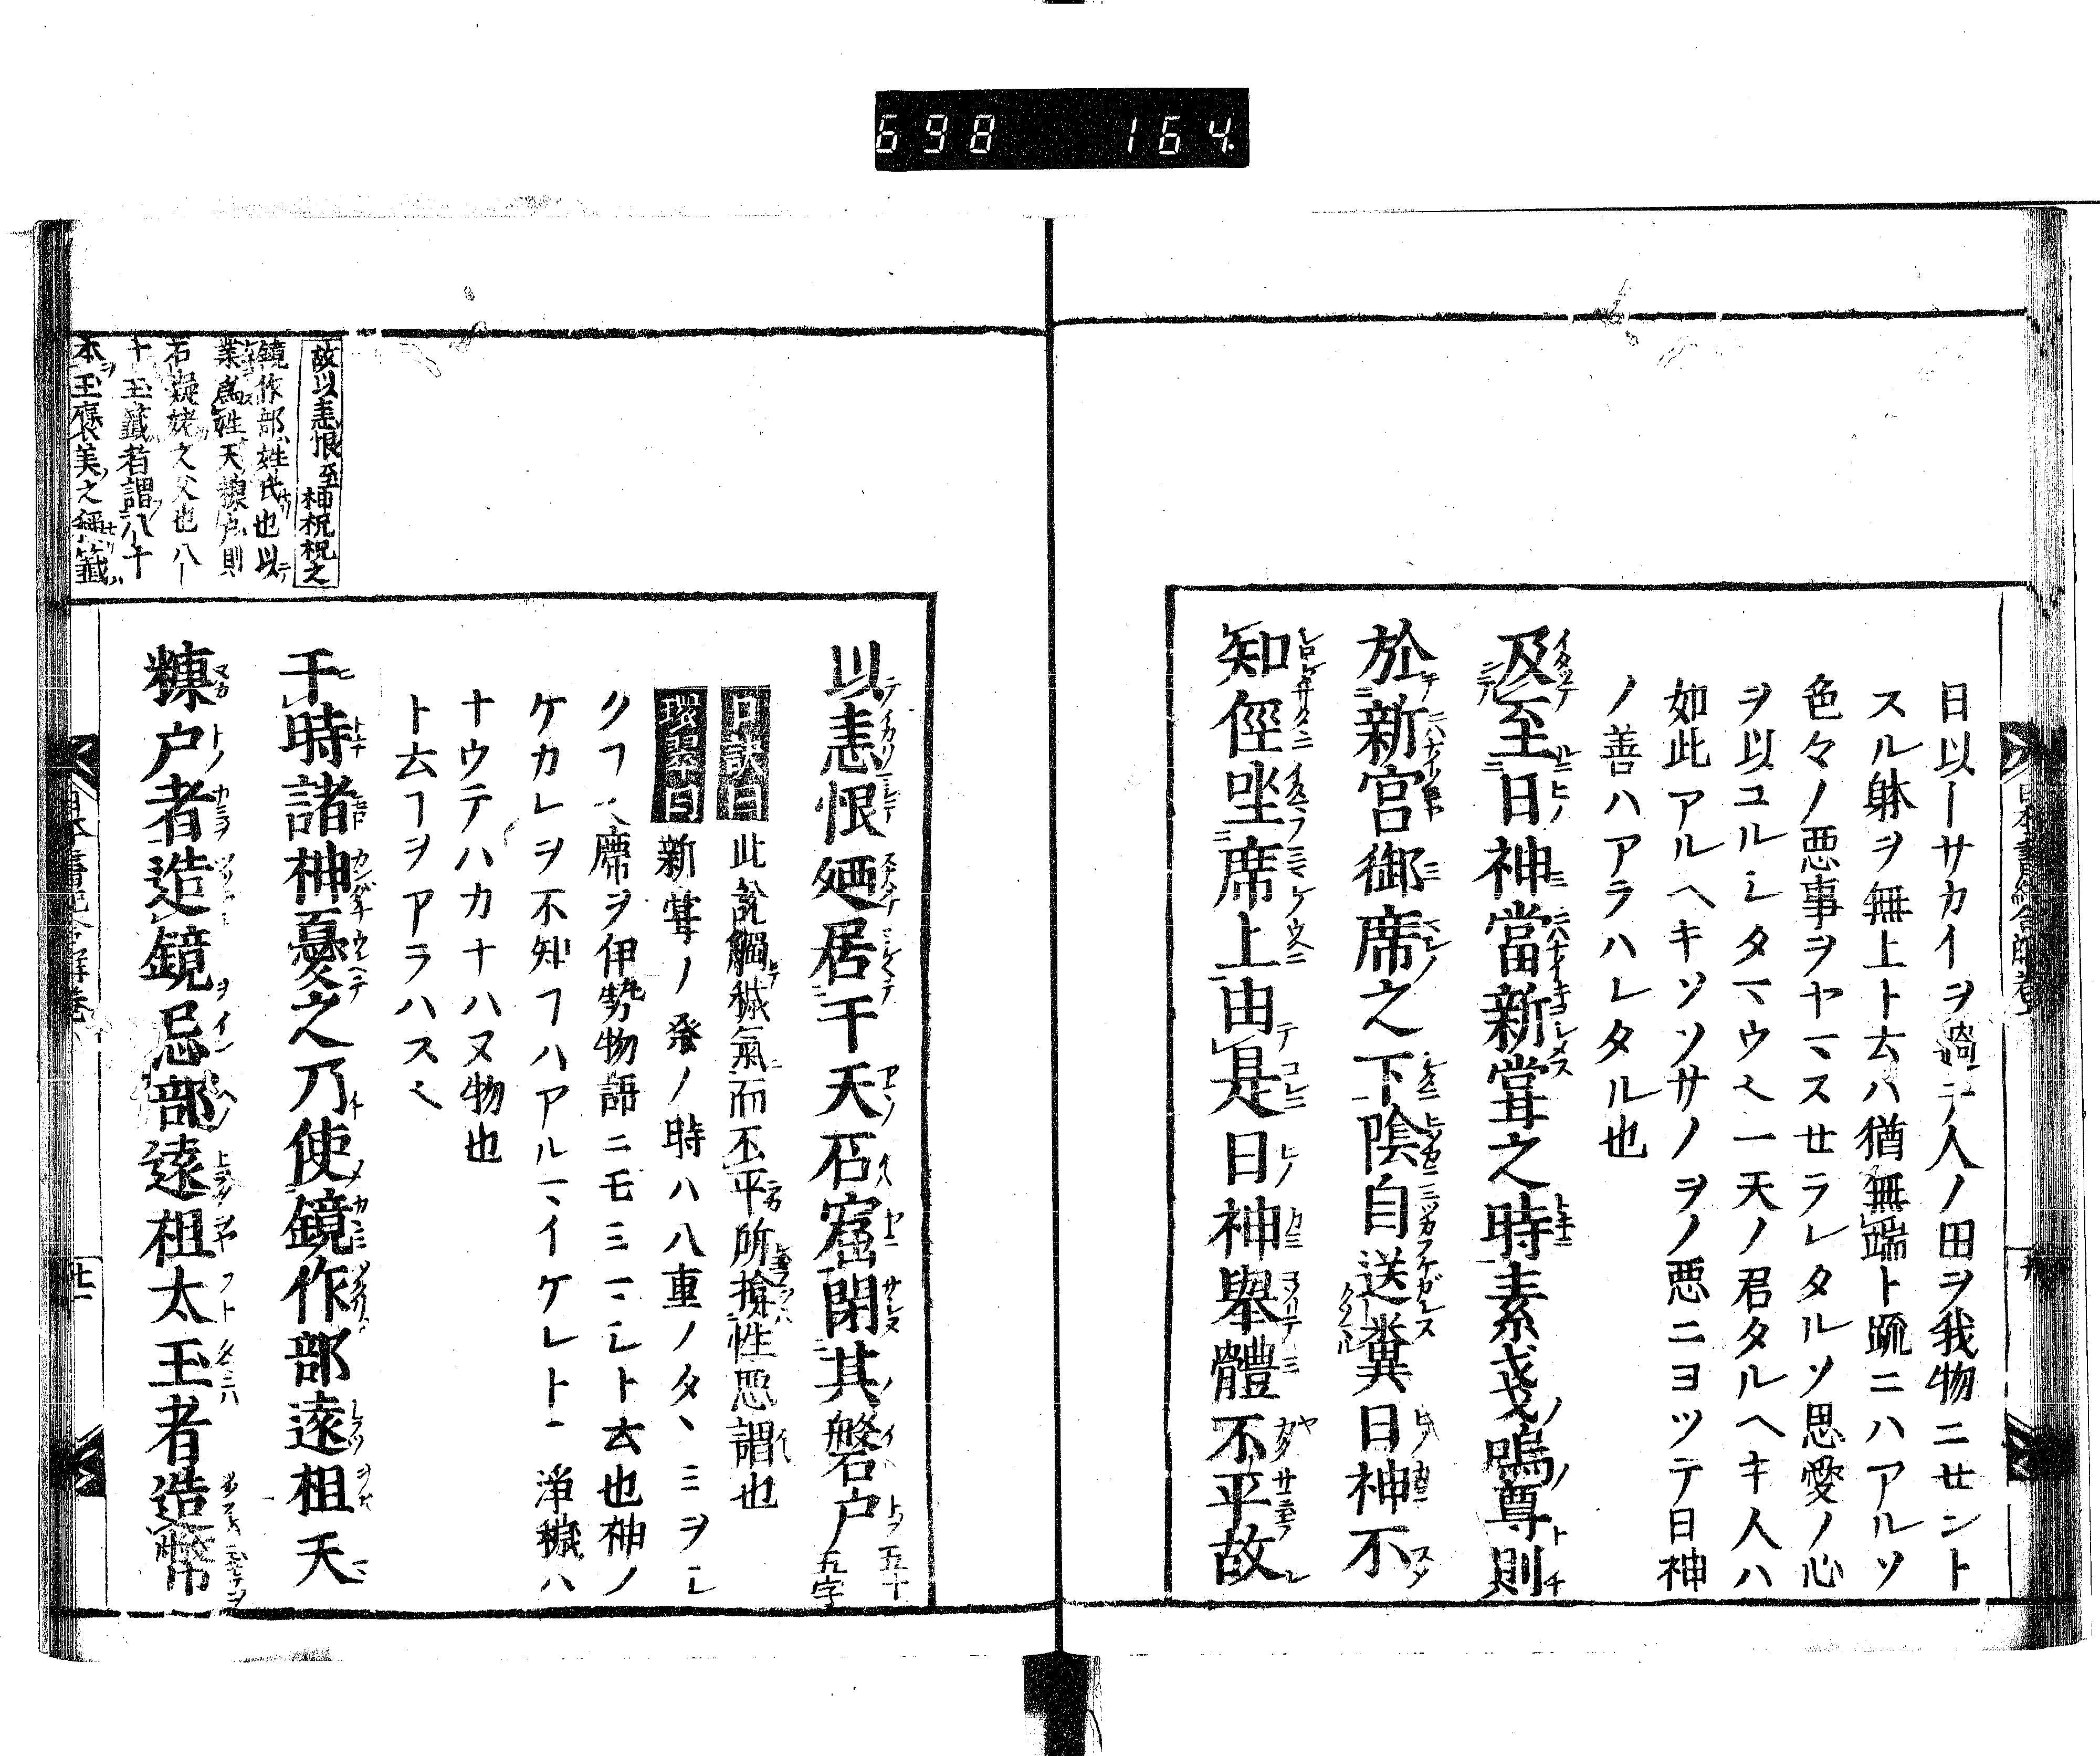 698 164
日以ーサカイヲ過テ人ノ田ヲ我物ニせント
スル躰ヲ無上ト云ハ猶無端ト䟽ニハアルソ
色々ノ悪事ヲヤマスせラレタルソ思愛ノ心
ヲ以ユルシタマウヘ一天ノ君タルヘキ人ハ
如此アルヘキソソサノヲノ悪ニヨツテ日神
ノ善ハアラハレタル也
及至日神當新甞之時素戔嗚尊則
於新宮御席之下陰自送糞日神不
知俓坐席上由是日神舉體不平故
故以恚恨至神祝祝之
鏡作部姓氏也以
業為姓天糠戸則
石凝姥之父也八ー
十玉籤者謂八十
本玉褒美之稱籤
以恚恨廼居于天石窟閉其磐户 五十五字
口訣曰 此説觸穢氣而不平所撿性悪謂也
環翠曰 新甞ノ祭ノ時ハ八重ノタヽミヲシ
クヿ 席ヲ伊勢物語ニモミマシト云也神ノ
ケカレヲ不知ヿハアルマイケレトー浄穢ハ
ナウテハカナハヌ物也
ト云ヿヲアラハス
于時諸神憂之乃使鏡作部遠祖天
糠户者造鏡忌部遠祖太玉者造幣